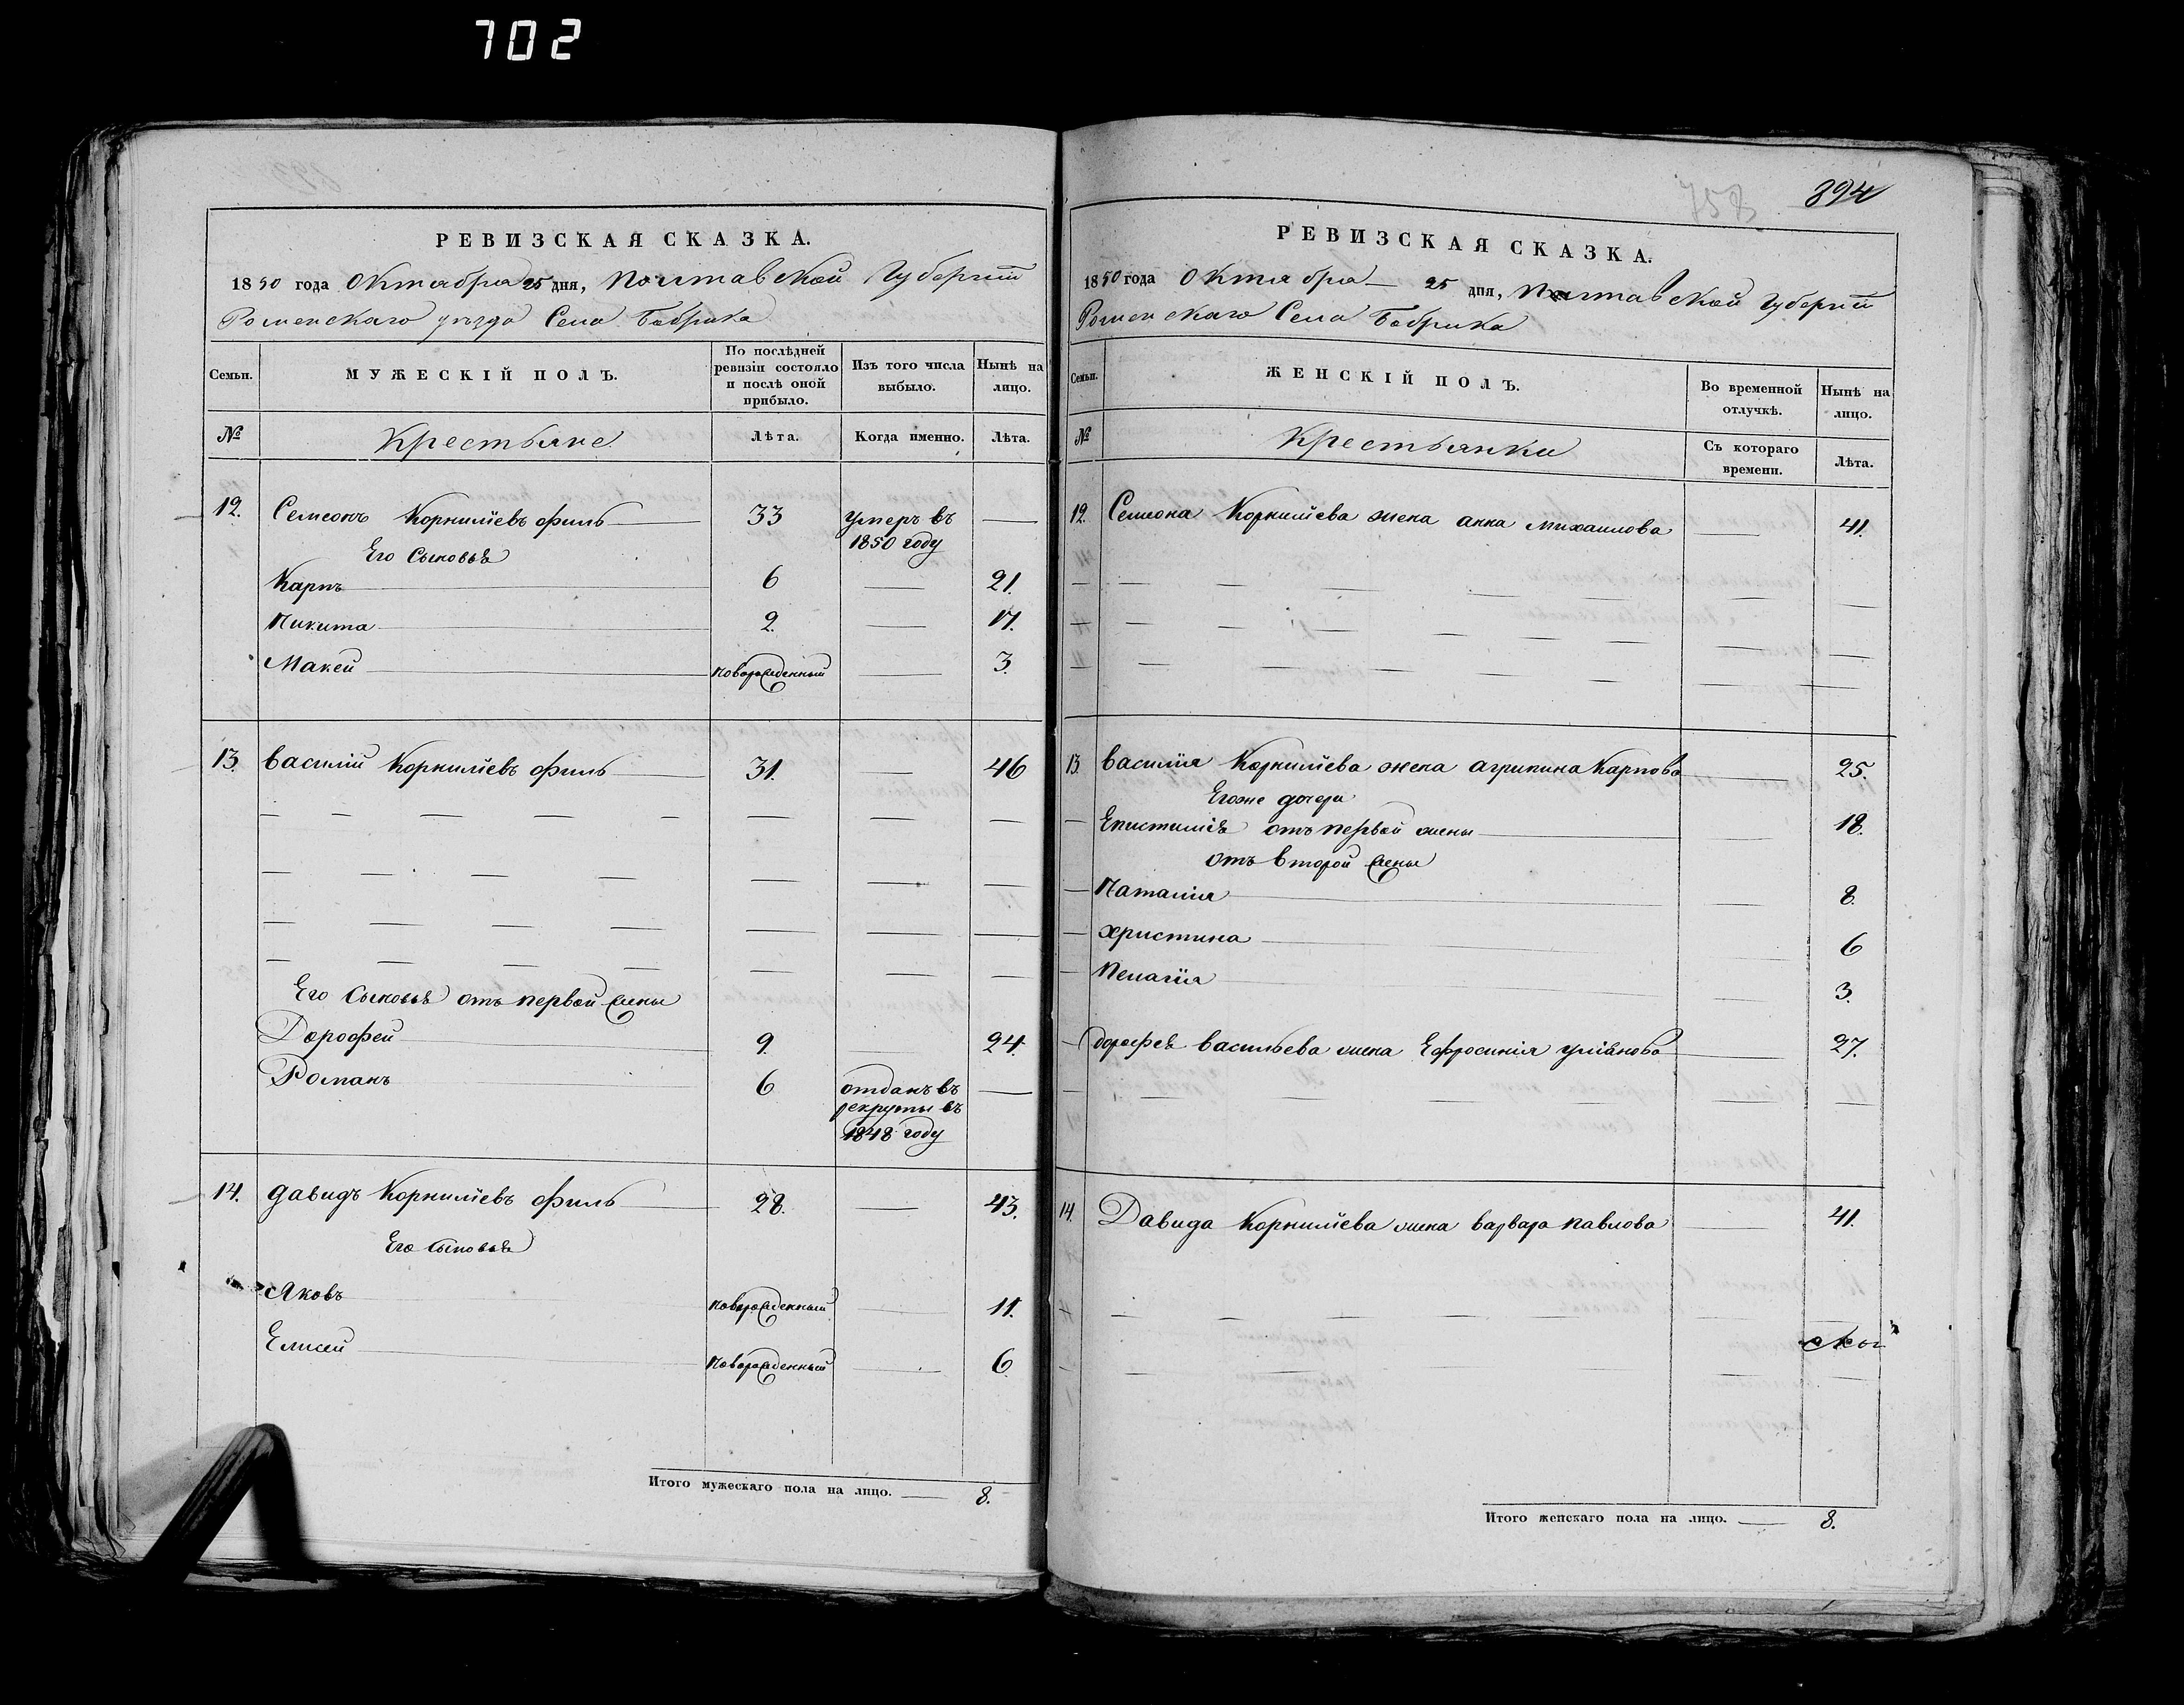 702
РЕВИЗСКАЯ СКАЗКА.
1850 года Октября 25 дня, Полтавской Губернiи
Роменскаго уезда Села Бобрика
Семьи.
МУЖЕСКIЙ ПОЛЪ.
По послѣдней ревизiи состояло и послѣ оной прибыло.
Изъ того числа выбыло.
Нынѣ на лицо.
№
Крестьяне
Лѣта.
Когда именно.
Лѣта.
12. Семионъ Корнилiевъ филь 33 умеръ въ 1850 году
Его Сыновья
Карпъ 6 21.
Никита 2. 17.
Макей новорожденный 3.
13. василiй Корнилiевъ филь 31. 46
Его Сыновья отъ первой жены
Дорофей 9. 24.
Романъ 6 отданъ въ рекруты въ 1848 году
14. давидъ Корнилiевъ филь 28. 43.
Его сыновья
Яковъ новорожденный 11.
Елисей новорожденный 6
Итого мужескаго пола на лицо. 8.
758
894
РЕВИЗСКАЯ СКАЗКА.
1850 года Октября 25 дня, Полтавской Губернiи
Роменскаго Села Бобрика
Семьи.
ЖЕНСКIЙ ПОЛЪ.
Во временной отлучкѣ.
Нынѣ на лицо.
№
Крестьянки
Съ котораго времени.
Лѣта.
12. Семиона Корнилiева жена анна михаилова 41.
13. василiя Корнилiева жена агрипина Карпова 25.
Егоже дочери
Епистимiя отъ первой жены 18.
отъ второй жены
Наталiя 8.
христина 6
Пелагiя 3.
дорофея васильева жена Ефросинiя 27.
14. Давида Корнилiева жена варвара павлова 41.
ской
Итого женскаго пола на лицо. 8.